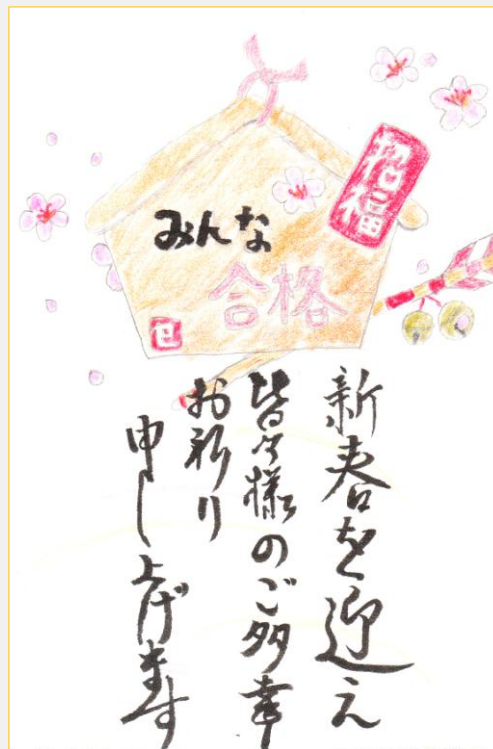 招福
みんな
合格
巳
新春を迎え
皆々様のご多幸
お祈り
申し上げます